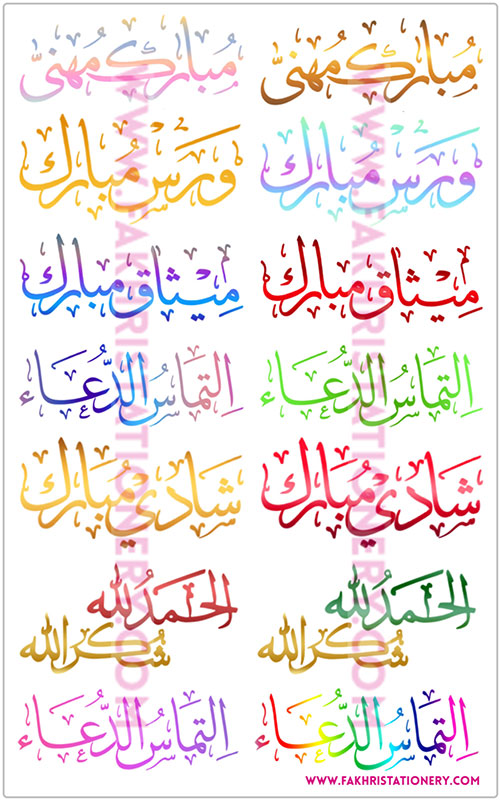 مُبارك مُهنىّ
مُبارك مُهنىّ
وَرَسْ مُبارك
وَرَسْ مُبارك
مِيْثاق مبارك
مِيْثاق مبارك
اِلتماسُ الدُّعَاء
اِلتماسُ الدُّعَاء
شَادي مُبَارك
شَادي مُبَارك
الحَمدُ لله
شُكر الله
الحَمدُ لله
شُكر الله
اِلتماسُ الدُّعَاء
اِلتماسُ الدُّعَاء
WWW.FAKHRISTATIONERY.COM
WWW.FAKHRISTATIONERY.COM
WWW.FAKHRISTATIONERY.COM